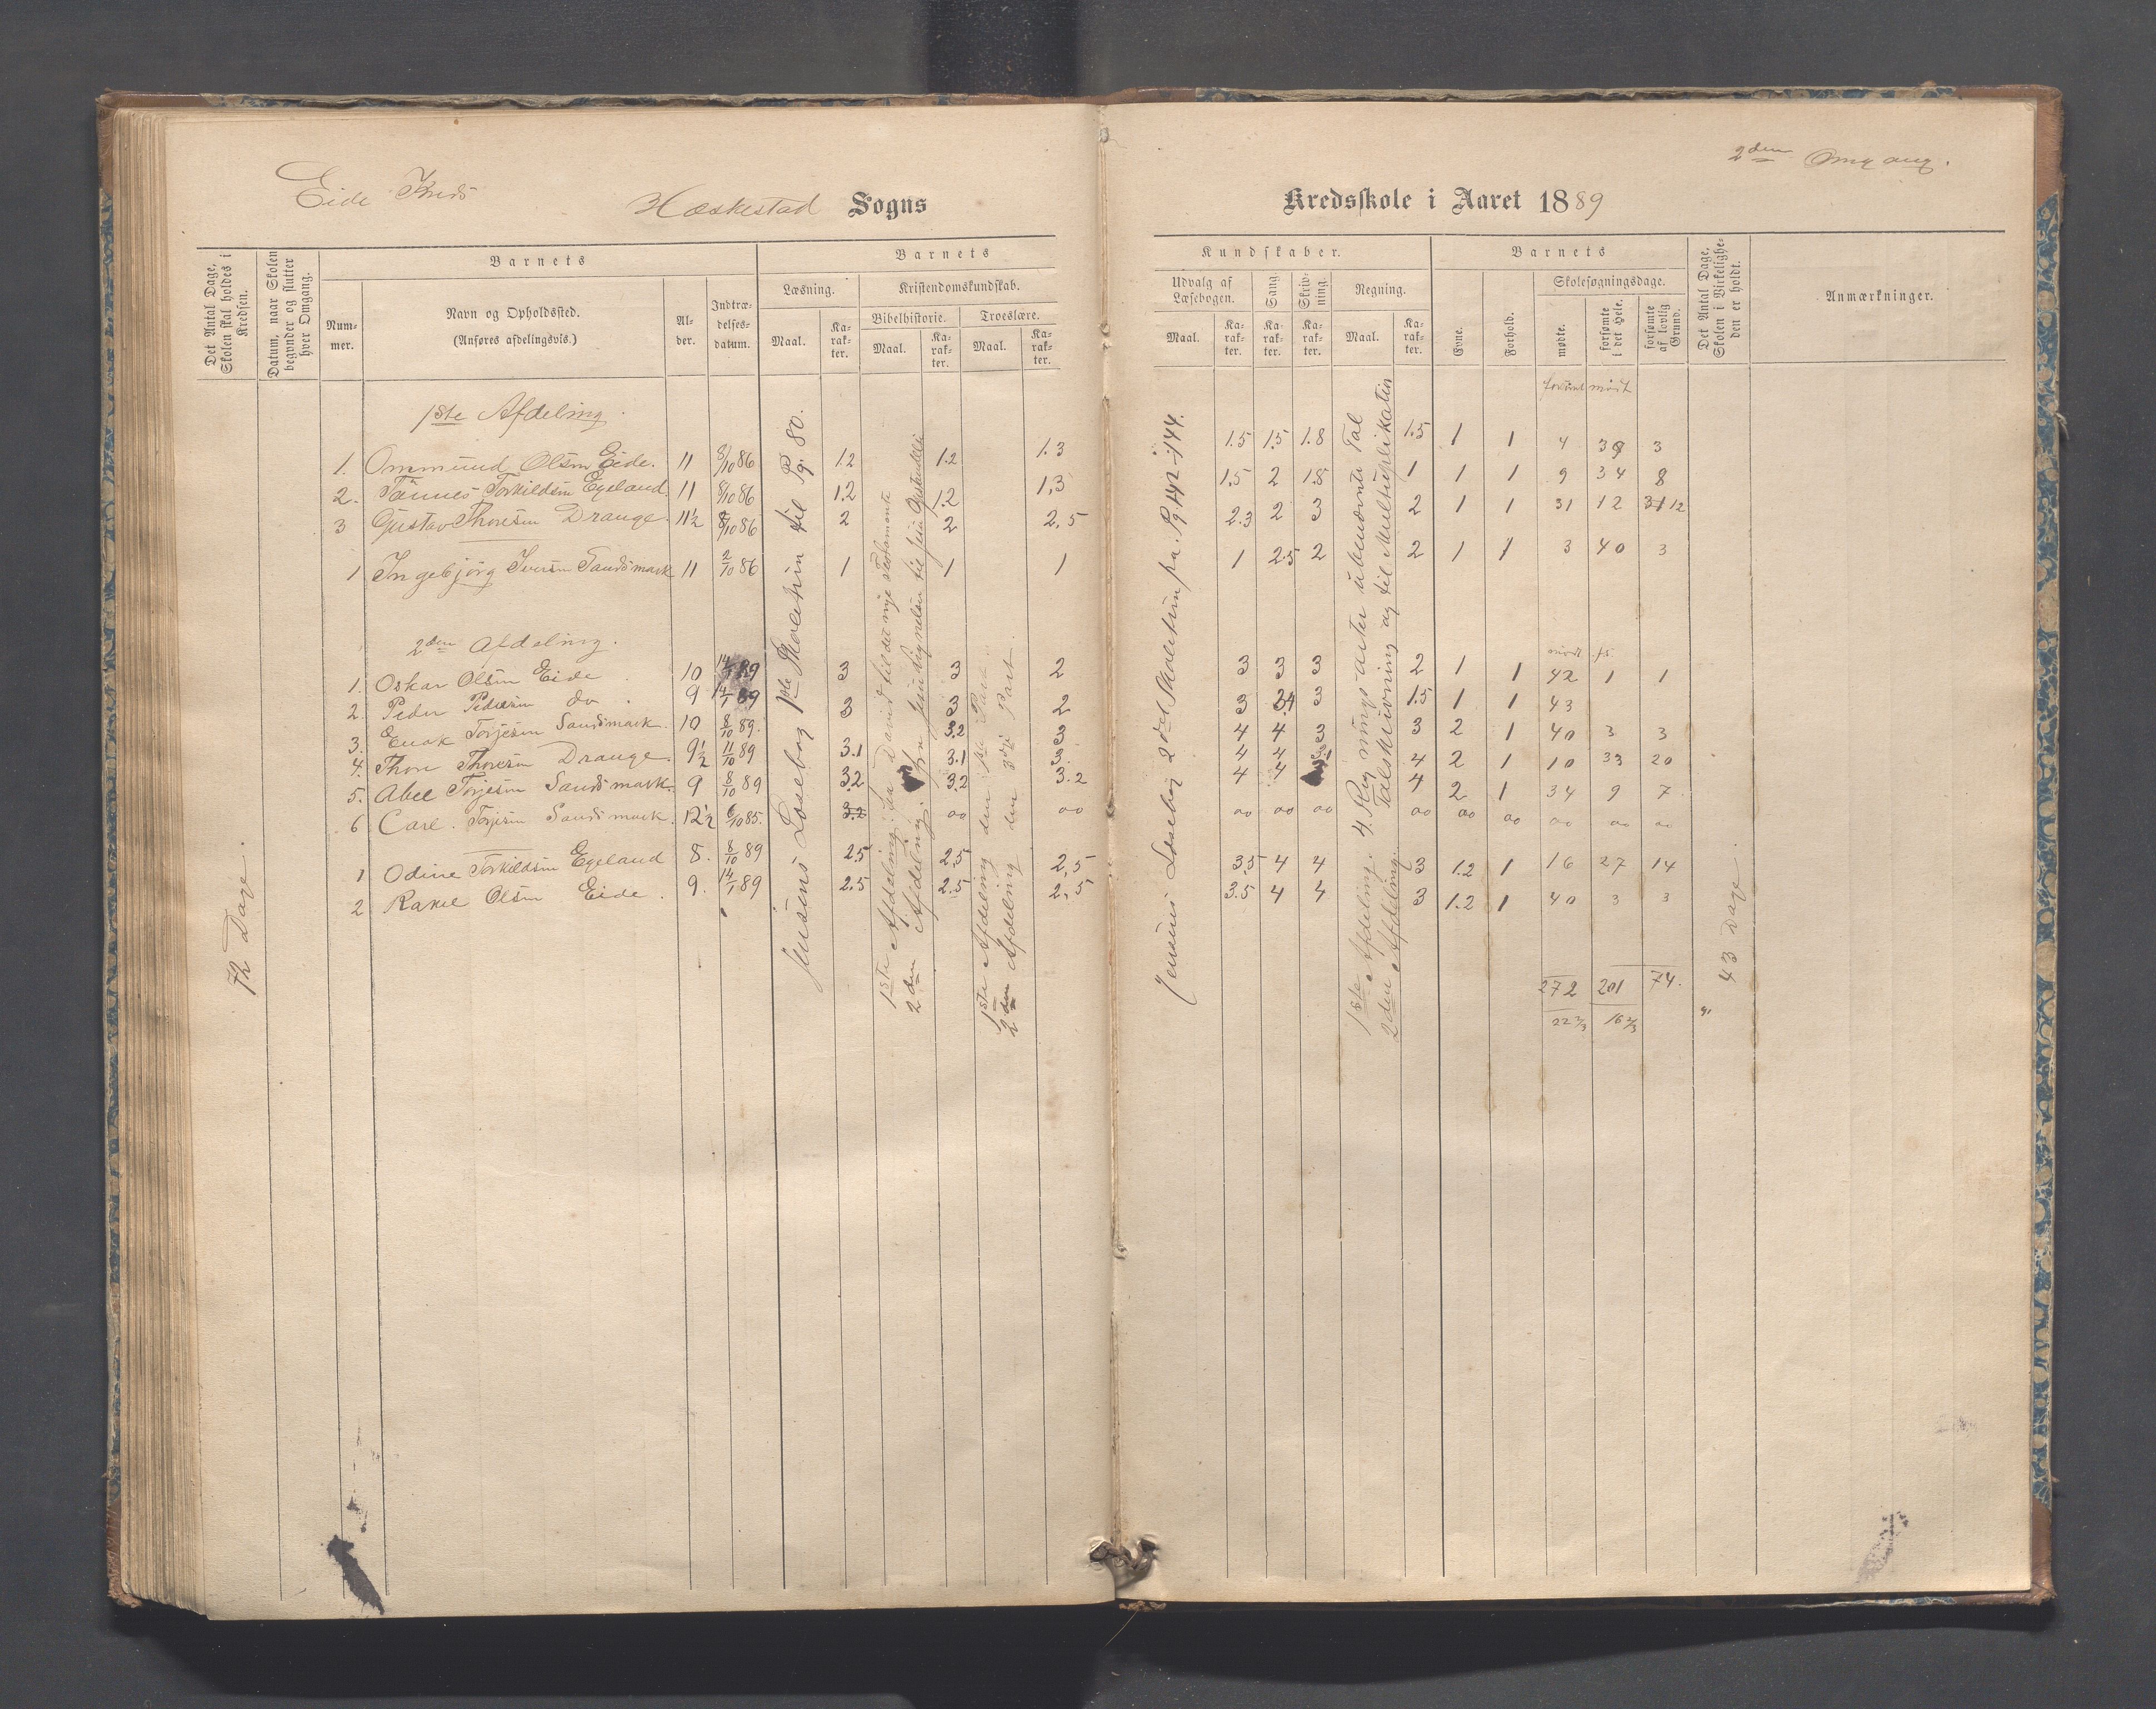 2den Omgang.
Eide Kreds Heskestad Sogns Kredsskole i Aaret 1889
Det Antal Dage, Skolen skal holdes i Kredsen.
Datum, naar Skolen begynder og slutter hver Omgang.
Barnets
Nummer.
Navn og Opholdssted.
(Anføres afdelingsvis.)
Alder.
Indtrædelsesdatum.
Barnets
Læsning.
Maal.
Karakter.
Kristendomskundskab.
Bibelhistorie.
Maal.
Karakter.
Troeslære.
Maal.
Karakter.
Kundskaber.
Udvalg af Læsebogen.
Maal.
Karakter.
Sang.
Karakter.
Skrivning.
Karakter.
Regning.
Maal.
Karakter.
Barnets
Evne.
Forhold.
Skolesøgningsdage.
mødte.
forsømte i det Hele.
forsømte af lovlig Grund.
Det Antal Dage, Skolen i Virkeligheden er holdt.
Anmærkninger.
1ste Afdeling.
1. Ommund Olsen Eide. 11 8/10 86 1.2 1.2 1.3 1.5 1.5 1.8 1.5 1 1 4 39 3
2. Tønnes Torkildsen Egeland. 11 8/10 86 1.2 1.2 1,3 1,5 2 1.8 1 1 1 9 34 8
3 Gustav Thoresen Drange. 11½ 8/10 86 2 2 2,5 2.3 2 3 2 1 1 31 12 12
1 Ingebjørg Iversen Sandsmark 11 2/10 86 1 1 1 1 2.5 2 2 1 1 3 40 3
2den Afdeling.
1. Oskar Olsen Eide 10 14/1 89 3 3 2 3 3 3 2 1 1 42 1 1
2. Peder Pedersen do 9 14/1 89 3 3 2 3 3 1.5 1 1 43
3. Enok Torjesen Sandsmark. 10 8/10 89. 3.2 3 4 4 3 3 2 1 40 3 3
4. Thore Thoresen Drange 9½ 11/10 89 3.1 3.1 3 4 4 4 2 1 10 33 20
5. Abel Torjesen Sandsmark. 9 8/10 89 3.2 3.2 3.2 4 4 4 2 1 34 9 7
6 Carl. Torjesen Sandsmark. 12½ 6/10 85. 3.2 oo oo oo oo oo oo oo oo oo oo oo
1 Odine Torkildsen Egeland 8. 8/10 89 2.5 2.5 2,5 3.5 4 4 3 1.2 1 16 27 14
2 Rakel Olsen Eide. 9. 14/1 89 2.5 2.5 2,5 3.5 4 4 3 1.2 1 40 3 3
272 201 74.
22 2/3 16 2/3
72 Dage.
Jensens Læsebog 1ste Skoletrin til Pg. 80.
1ste Afdeling: fra David til det nye Testamente
2den Afdeling: fra Jesu
1ste Afdeling den 1ste Part
2den Afdeling den 3die Part
Jensens Læsebog 2det Skoletrin fra Pg. 142-144.
1ste Afdeling. 4 Regningsarter i ubenævnte Tal
2den Afdeling. Talskrivning og til Multiplikation
43 Dage.